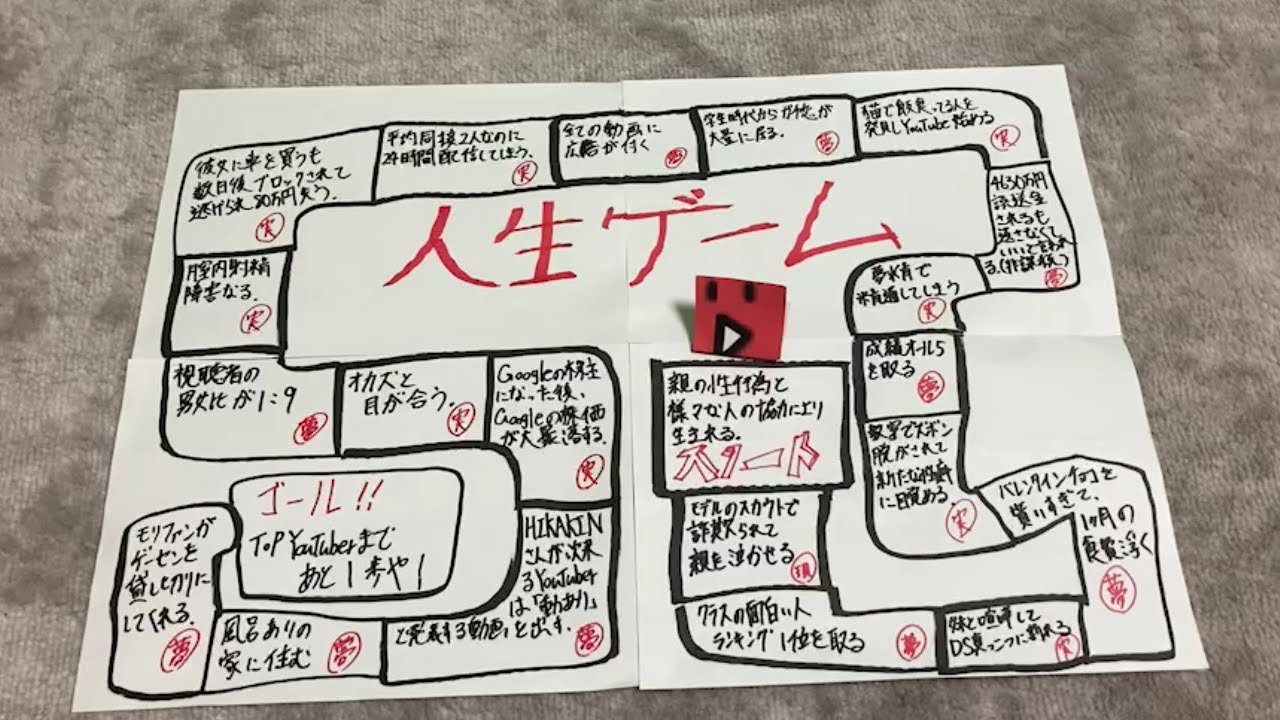 人生ゲーム
親の性行為と
様々な人の協力により
生まれる。
スタート
モデルのスカウトで
詐欺られて
親を泣かせる
現
クラスの面白い人
ランキング1位を取る
夢
妹と喧嘩して
DS真っ二つに折れる
実
バレンタインチョコを
貰いすぎて、
1ヶ月の
食費浮く
夢
教室でズボン
脱がされて
新たな
に目覚める
実
成績オール5
を取る
夢
夢水育で
米青通してしまう
実
4630万円
誤送金
されるも
返さなくて
いいと言われ
る。(非課税)
夢
猫で飲食ってる人を
発見しYouTube始める
実
学生時代からが
大量に居る。
夢
全ての動画に
広告が付く
夢
平均同接2人なのに
24時間配信してしまう。
実
彼女に車を買うも
数日後ブロックされて
逃げられ80万円失う。
実
膣内射精
障害なる。
実
視聴者の
男女比が1:9
夢
オカズと
目が合う。
実
Googleの株主
になった後、
Googleの株価
が大暴落する。
実
HIKAKIN
さんが次来
るYouTuber
は「動あり」
と発表する動画を出す。
夢
風呂ありの
家に住む
夢
モリファンが
ゲーセンを
貸し切りに
してくれる。
夢
ゴール!!
ToP YouTuberまで
あと1歩や!